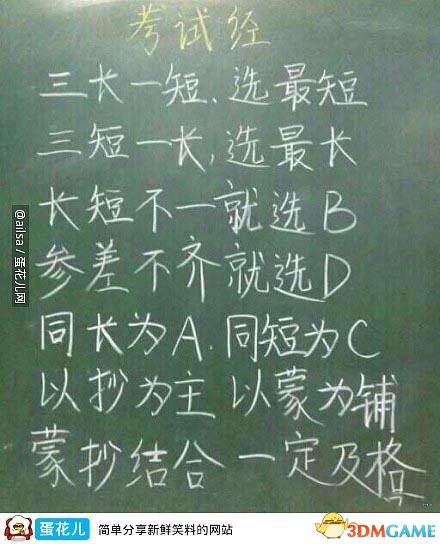 考试经
三长一短、选最短
三短一长,选最长
长短不一就选B
参差不齐就选D
同长为A.同短为C
以抄为主 以蒙为铺
蒙抄结合 一定及格
@ailsa / 蛋花儿网
蛋花儿 简单分享新鲜笑料的网站
3DMGAME